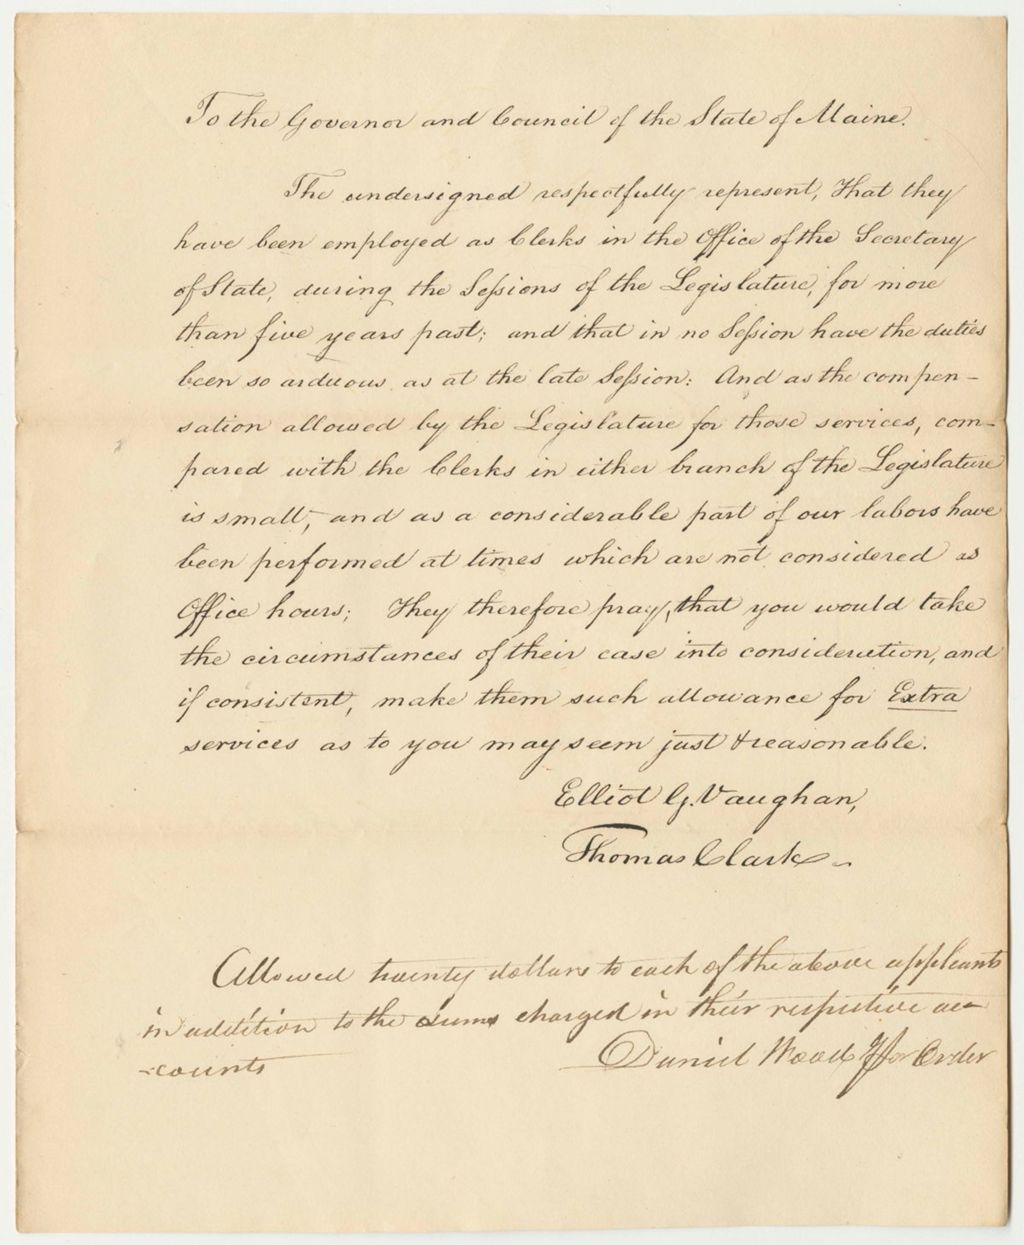 To the Governor and Council of the State of Maine.
The undersigned respectfully represent, That they
have been employed as Clerks in the Office of the Secretary
of State, during the Sessions of the Legislature, for more
than five years past; and that in no Session have the duties
been so arduous as at the late Session: And as the compen-
sation allowed by the Legislature for those services, com-
pared with the Clerks in either branch of the Legislature
is small, and as a considerable part of our labors have
been performed at times which are not considered as
Office hours; They therefore pray, that you would take
the circumstances of their case into consideration, and
if consistent, make them such allowance for Extra
services as to you may seem just & reasonable.
Elliot G. Vaughan,
Thomas Clark
Allowed twenty dollars to each of the above applicants
in addition to the sums charged in their respective ac-
-counts
Daniel Wood for Order